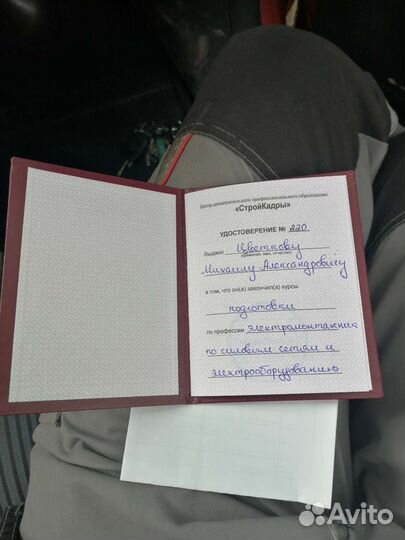 Центр дополнительного профессионального образования
«СтройКадры»
УДОСТОВЕРЕНИЕ № 220
Выдано Цветкову
(фамилия, имя, отчество)
Михаилу Александровичу
в том, что он(а) закончил(а) курсы
подготовки
по профессии Электромонтажник
по силовым сетям и
электрооборудованию
Avito